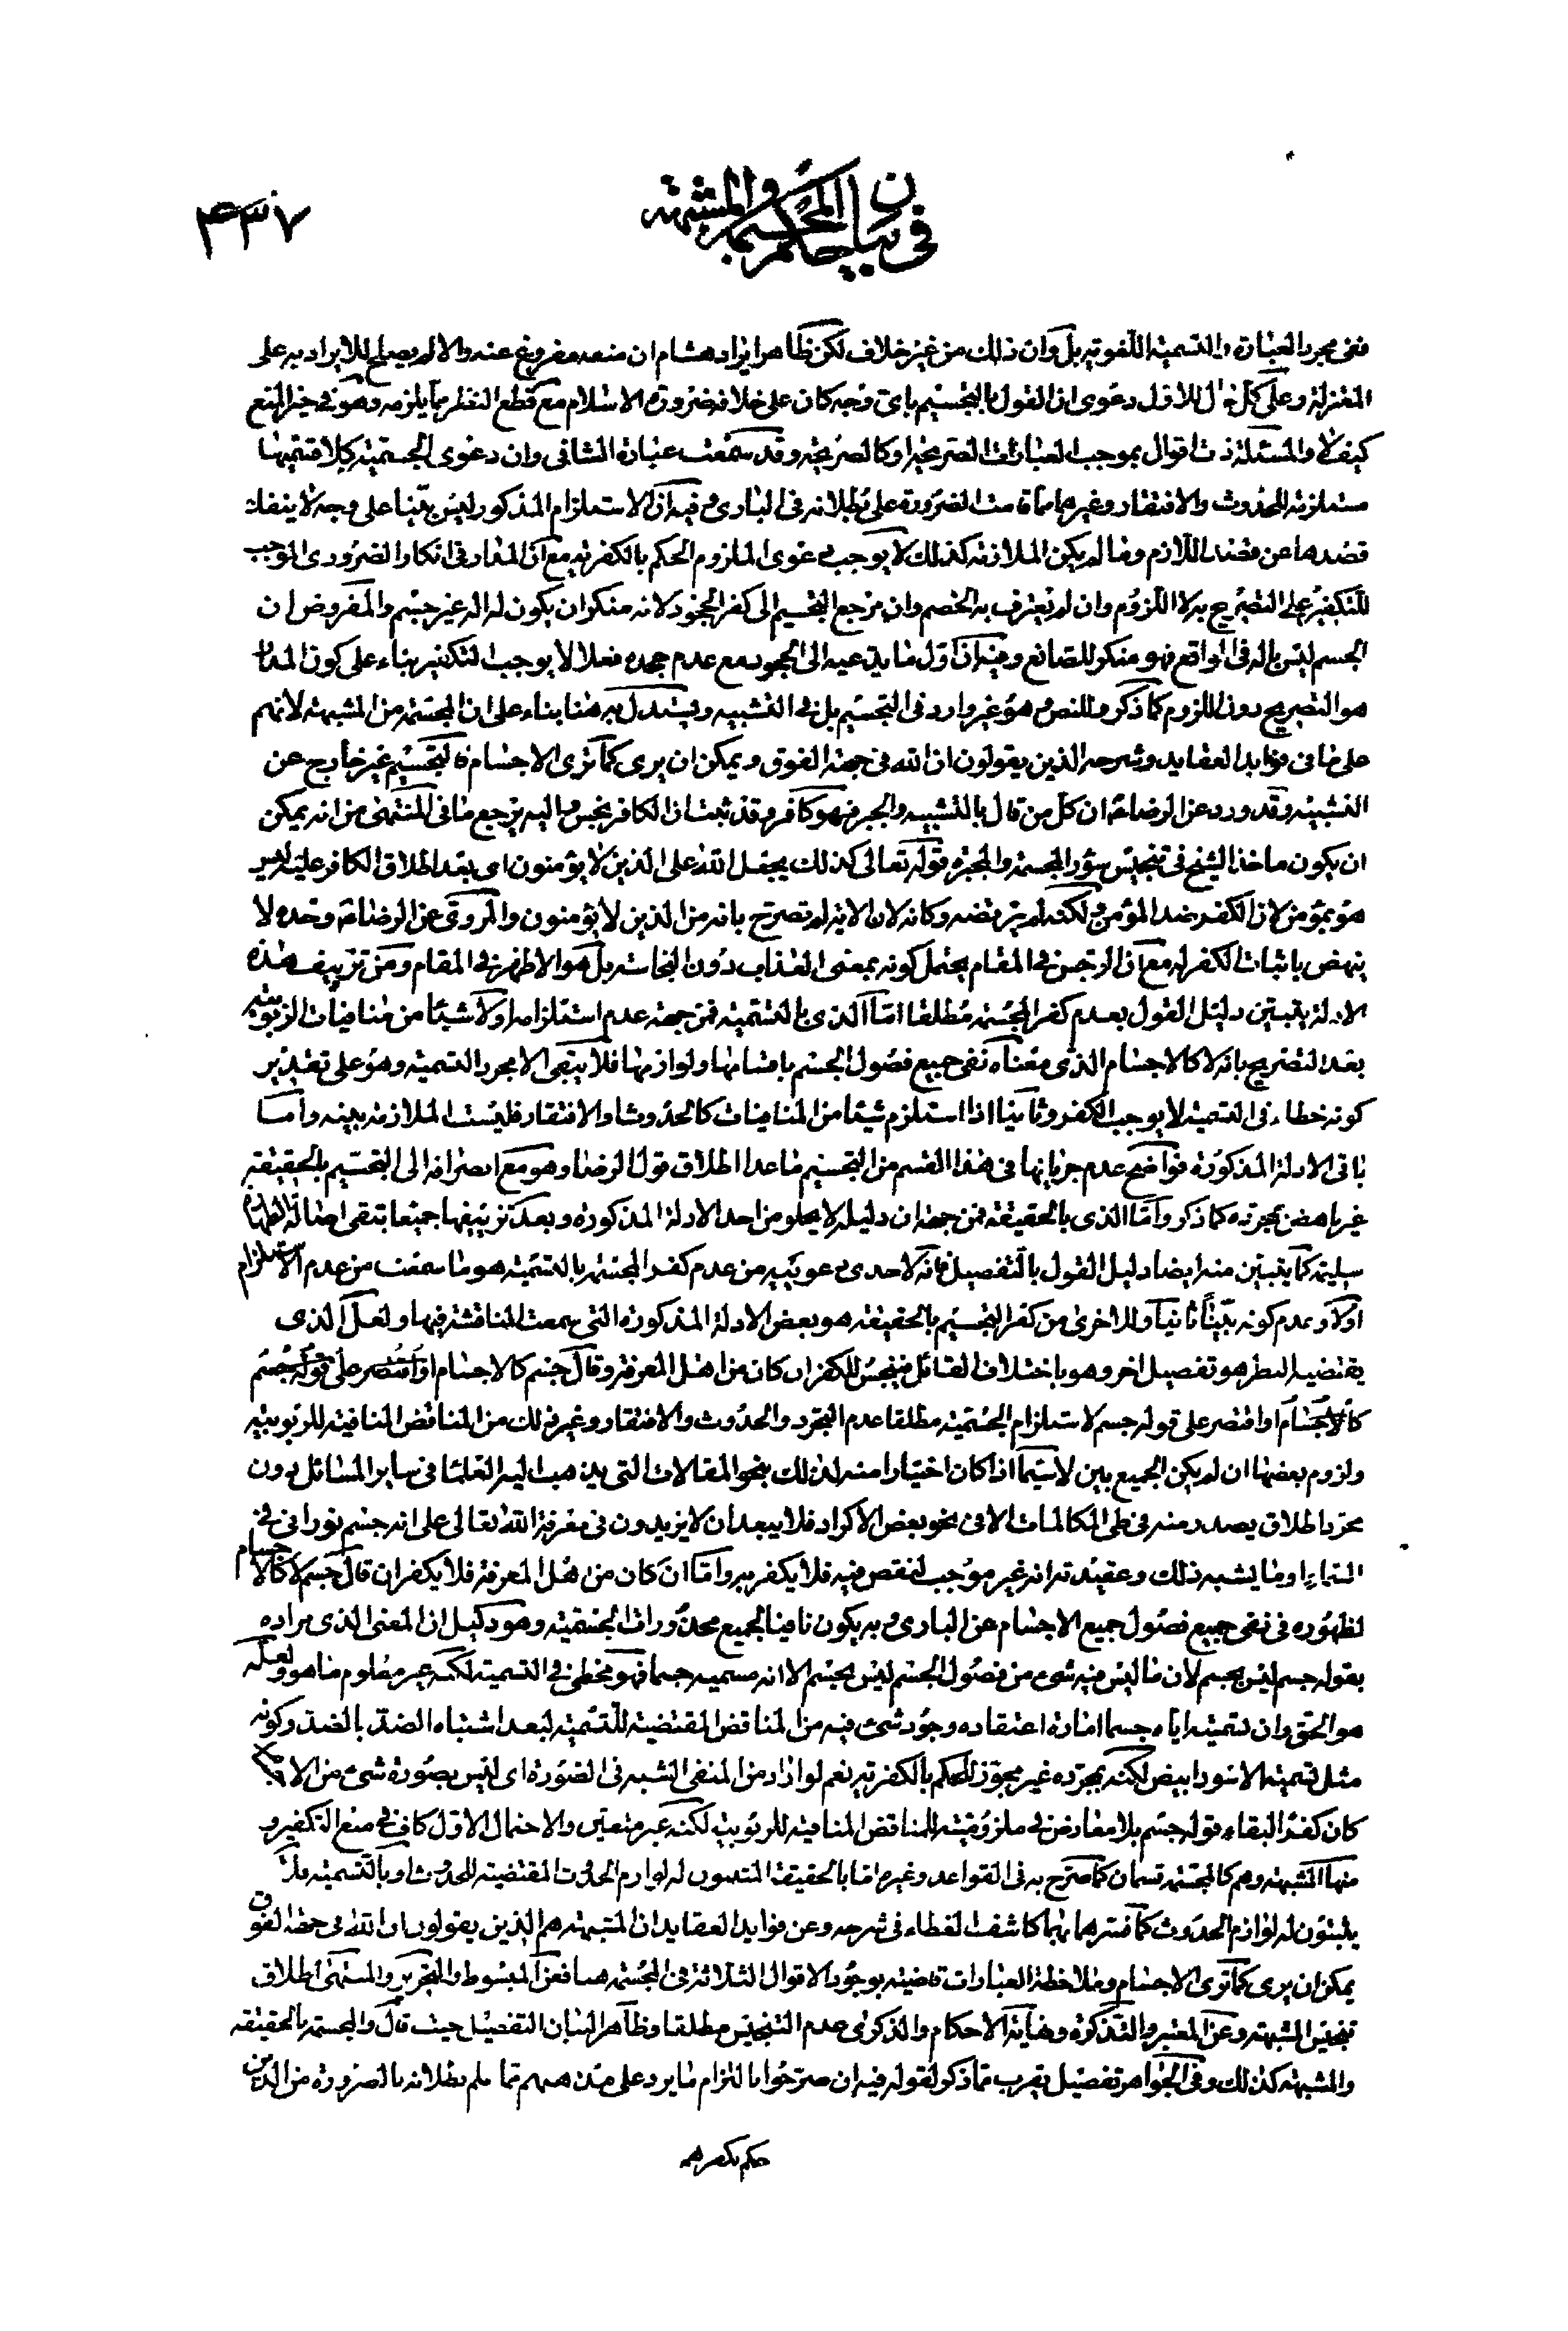 في بيان حكم المجسمة والمشبهة
۴۳۷
ففي مجرد العبارة والتسمية اللغوية بل وان ذلك من غير خلاف لكن ظاهر ايراد هشام ان منعه مفروغ عنه والا لم يصلح للايراد به على
المعتزلة وعلى كل حال للاول دعوى ان القول بالتجسيم باي وجه كان على خلاف ضرورة الاسلام مع قطع النظر عما يلزمه وهو في حيز المنع
كيف لا والمسئلة ذات اقوال بموجب العبارات الصريحة او كالصريحة وقد سمعت عبارة الشافي وان دعوى الجسمية بكلا قسميها
مستلزمة للحدوث والافتقار وغيرهما مما قامت الضرورة على بطلانه في الباري وفيه ان الاستلزام المذكور ليس بينا على وجه لا ينفك
قصدها عن قصد اللازم وما لم يكن الملازمة كذلك لا يوجب دعوى الملزوم الحكم بالكفر به مع ان المدار في انكار الضروري الموجب
للتكفير على التصريح به لا اللزوم وان لم يعترف به الخصم وان مرجع التجسيم الى كفر الجحود لانه منكر ان يكون له اله غير جسم والمفروض ان
الجسم ليس باله في الواقع فهو منكر للصانع وفيه ان اول ما يدعيه الى الجحود مع عدم جحده فعلا لا يوجب التكفير بناء على كون المدار
هو التصريح دون اللزوم كما ذكر وللنص وهو غير وارد في التجسيم بل في التشبيه ويستدل به هنا بناء على ان المجسمة من المشبهة لانهم
على ما في فوايد العقايد وشرحه الذين يقولون ان الله في جهة الفوق ويمكن ان يرى كما نرى الاجسام فالتجسيم غير خارج عن
التشبيه وقد ورد عن الرضا ان كل من قال بالتشبيه والجبر فهو كافر وقد ثبت ان الكافر نجس واليه يرجع ما في المنتهى من انه يمكن
ان يكون ماخذ الشيخ في تنجيس سؤر المجسمة والمجبرة قوله تعالى كذلك يجعل الله على الذين لا يؤمنون اي بعد اطلاق الكافر عليه ليس
هو بمؤمن لان الكفر ضد المؤمن لكنه لم يرتضه وكانه لان الاية لم تصرح بانه من الذين لا يؤمنون والمروي عن الرضا وحده لا
ينهض باثبات الكفر له مع ان الرجس في المقام يحتمل كونه بمعنى العذاب دون النجاسة بل هو الاظهر في المقام ومن تزييف هذه
الادلة يتبين دليل القول بعدم كفر المجسمة مطلقا اما الذي بالتسمية فمن جهة عدم استلزامه اولا شيئا من منافيات الربوبية
بعد التصريح بانه لا كالاجسام الذي معناه نفي جميع فصول الجسم باقسامها ولوازمها فلا يبقى الا مجرد التسمية وهو على تقدير
كونه خطاء في التسمية لا يوجب الكفر وثانيا اذا استلزم شيئا من المنافيات كالحدوث والافتقار فليست الملازمة بينه واما
باقي الادلة المذكورة فواضح عدم جريانها في هذا القسم من التجسيم ما عدا اطلاق قول الرضا وهو مع انصرافه الى التجسيم بالحقيقة
غير ناهض بمجرده كما ذكر واما الذي بالحقيقة فمن جهة ان دليله لا يخلو من احد الادلة المذكورة وبعد تزييفها جميعا بتقى اصالة الطهارة
سليمة كما يتبين منه ايضا دليل القول بالتفصيل فانه لاحدى دعوييه من عدم كفر المجسمة بالتسمية هو ما سمعت من عدم الاستلزام
اولا وعدم كونه بينا ثانيا وللاخرى من كفر التجسيم بالحقيقة هو بعض الادلة المذكورة التي سمعت المناقشة فيها ولعل الذي
يقتضيه النظر هو تفصيل اخر وهو باختلاف القائل فينجس للكفر ان كان من اهل المعرفة وقال جسم كالاجسام او اقتصر على قوله جسم
كالاجسام او اقتصر على قوله جسم لاستلزام الجسمية مطلقا عدم التجرد والحدوث والافتقار وغير ذلك من المناقض المنافية للربوبية
ولزوم بعضها ان لم يكن الجميع بين لا سيما اذا كان اختيارا منه لذلك بنحو المقالات التي يذهب اليه العلما في ساير المسائل دون
مجرد اطلاق يصدر منه في طي المكالمات الا في نحو بعض الاكراد فلا يبعد ان لا يزيدون في معرفة الله تعالى على انه جسم نوراني في
السماء او ما يشبه ذلك وعقيدته انه غير موجب لنقص فيه فلا يكفر به واما ان كان من اهل المعرفة فلا يكفر ان قال جسم لا كالاجسام
لظهوره في نفي جميع فصول جميع الاجسام عن الباري وبه يكون نافيا لجميع محذورات الجسمية وهو دليل ان المعنى الذي مراده
بقوله جسم ليس بجسم لان ما ليس فيه شيء من فصول الجسم ليس بجسم الا انه مسميه جسما فهو مخطئ في التسمية لكنه غير معلوم ما هو ولعله
هو الحق وان تسميته اياه جسما امارة اعتقاده وجود شيء فيه من المناقض المقتضية للتسمية لبعد اشتباه الضد بالضد وكونه
مثل تسمية الاسود ابيض لكنه بمجرده غير مجوز للحكم بالكفر به نعم لو اراد من المنفى الشبه في الصورة اي ليس بصورة شيء من الاجسام
كان كفر البقاء قوله جسم بلا معارض في ملزوميته للمناقض المنافية للربوبية لكنه غير متعين والاحتمال الاول كاف في منع التكفير و
منها المشبهة وهم كالمجسمة قسمان كما صرح به في القواعد وغيره اما بالحقيقة المثبتون له لوازم الحدوث المقتضية للحدوث او بالتسمية فلا
يثبتون له لوازم الحدوث كما فسرهما بهما كاشف الغطاء في شرحه وعن فوايد العقايد ان المشبهة هم الذين يقولون ان الله في جهة الفوق
يمكن ان يرى كما نرى الاجسام وملاحظة العبارات قاضية بوجود الاقوال الثلاثة في المجسمة هنا فعن المبسوط والتحرير والمنتهى اطلاق
تنجيس المشبهة وعن المعتبر والتذكرة ونهاية الاحكام والذكرى عدم التنجيس مطلقا وظاهر البيان التفصيل حيث قال والمجسمة بالحقيقة
والمشبهة كذلك وفي الجواهر تفصيل يقرب مما ذكر لقوله فيه ان صرحوا بالتزام ما يرد على مذهبهم مما علم بطلانه بالضرورة من الدين
حكم بكفرهم